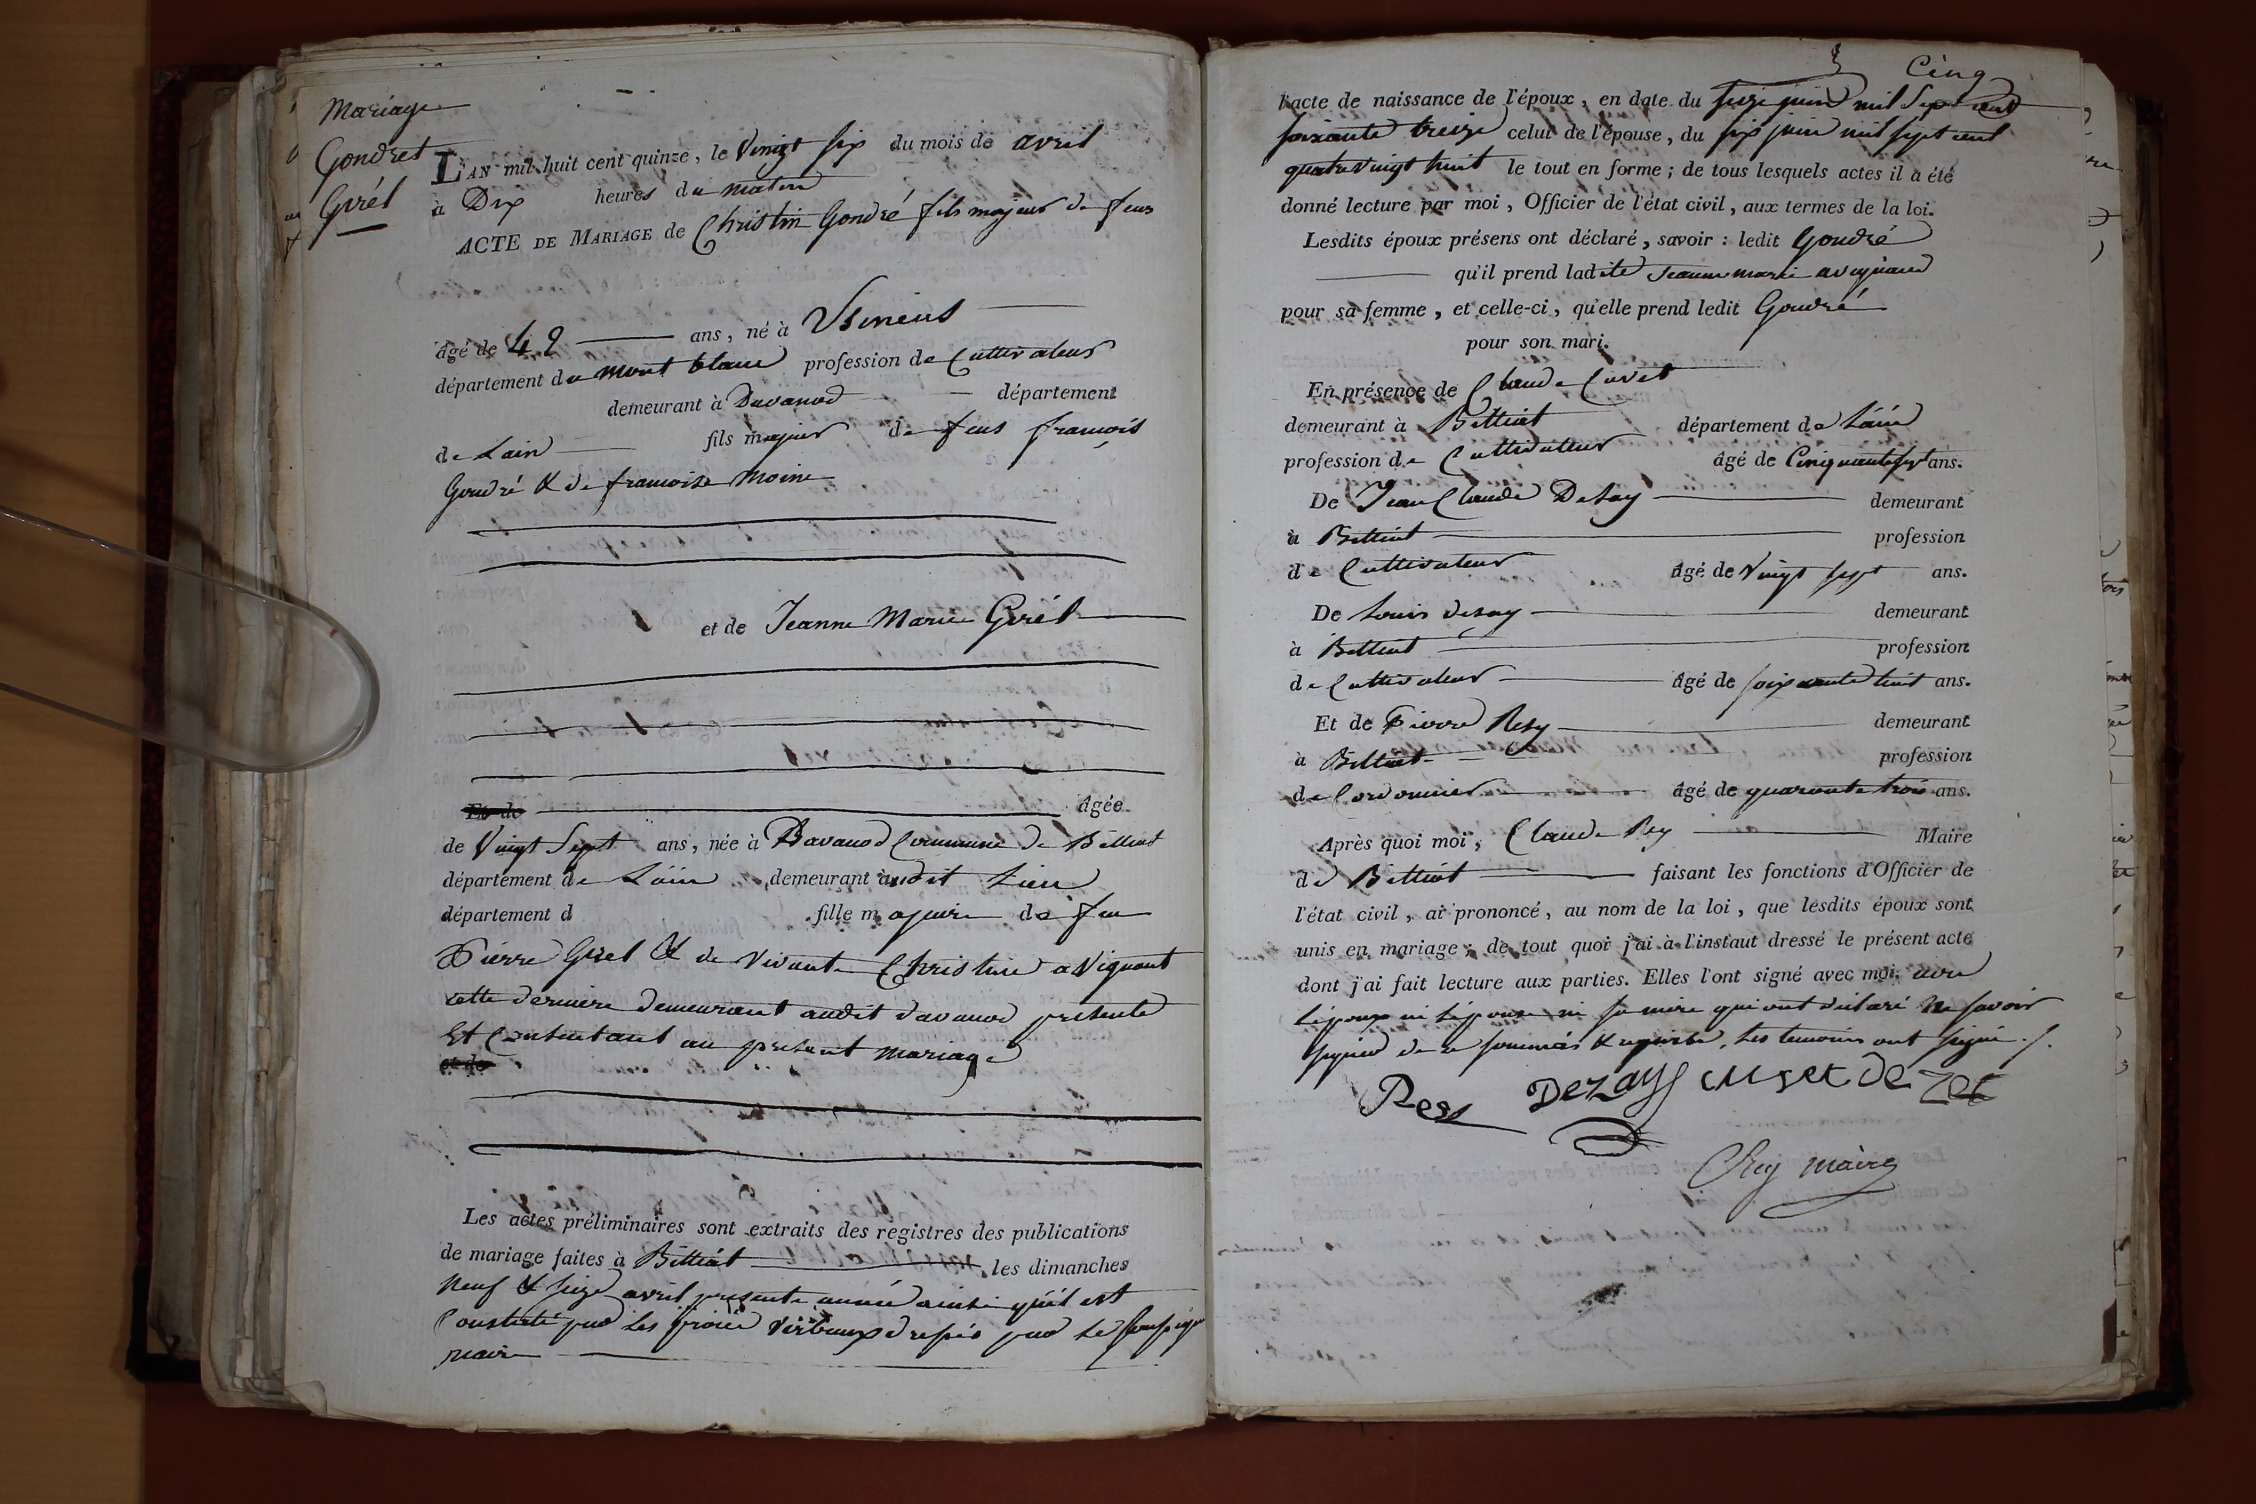 Mariage
Gondret
Girél
L'AN mil huit cent quinze, le Vingt six du mois de avril
à Dix heures du matin
ACTE DE MARIAGE de Christin Gondré fils majeur de feus
âgé de 42 ans, né à Usinens
département du mont blanc profession de Cultivateur
demeurant à Davanod département
de Lain fils majeur de feus francois
Gondré & de francoise Moine
et de Jeanne Marie Girél
Et de âgée
de Vingt Sept ans, née à Davanod Commune de Billiat
département de Lain demeurant audit Lieu
département d fille majeure de feu
Pierre Girel & de Vivante Christine aViquant
cette derniere demeurant audit davanod presente
Et Consentant au present mariage
et de
Les actes préliminaires sont extraits des registres des publications
de mariage faites à Billiat les dimanches
Neuf & seize avril presente année ainsi quil est
Constaté par les procés Verbeaux dressés par le soussigné
maire
Cinq
l'acte de naissance de l'époux, en date du seize juin mil Sept cent
soixante treize celui de l'épouse, du six juin mil sept cent
quatre vingt huit le tout en forme; de tous lesquels actes il a été
donné lecture par moi, Officier de l'état civil, aux termes de la loi.
Lesdits époux présens ont déclaré, savoir: ledit Gondré
qu'il prend ladite Jeanne marie
pour sa femme, et celle-ci, qu'elle prend ledit Gondré
pour son mari.
En présence de Claude Curet
demeurant à Billiat département de Lain
profession de Cultivateur âgé de Cinquante sept ans.
De Jean Claude Desay demeurant
à Billiat profession
de Cultivateur âgé de Vingt sept ans.
De Louis desay demeurant
à Billiat profession
de Cultivateur âgé de soixante huit ans.
Et de Pierre Rey demeurant
à Billiat profession
de Cordonnier âgé de quarante trois ans.
Après quoi moi, Claude Rey Maire
de Billiat faisant les fonctions d'Officier de
l'état civil, ai prononcé, au nom de la loi, que lesdits époux sont
unis en mariage; de tout quoi j'ai à l'instaut dressé le présent acte
dont j'ai fait lecture aux parties. Elles l'ont signé avec moi
Lépoux ni Lépouse ni sa mere qui ont déclaré ne savoir
signer de ce sommés & requise, les temoins ont signé ./.
Rey Dezay curet de zet
CRey maire